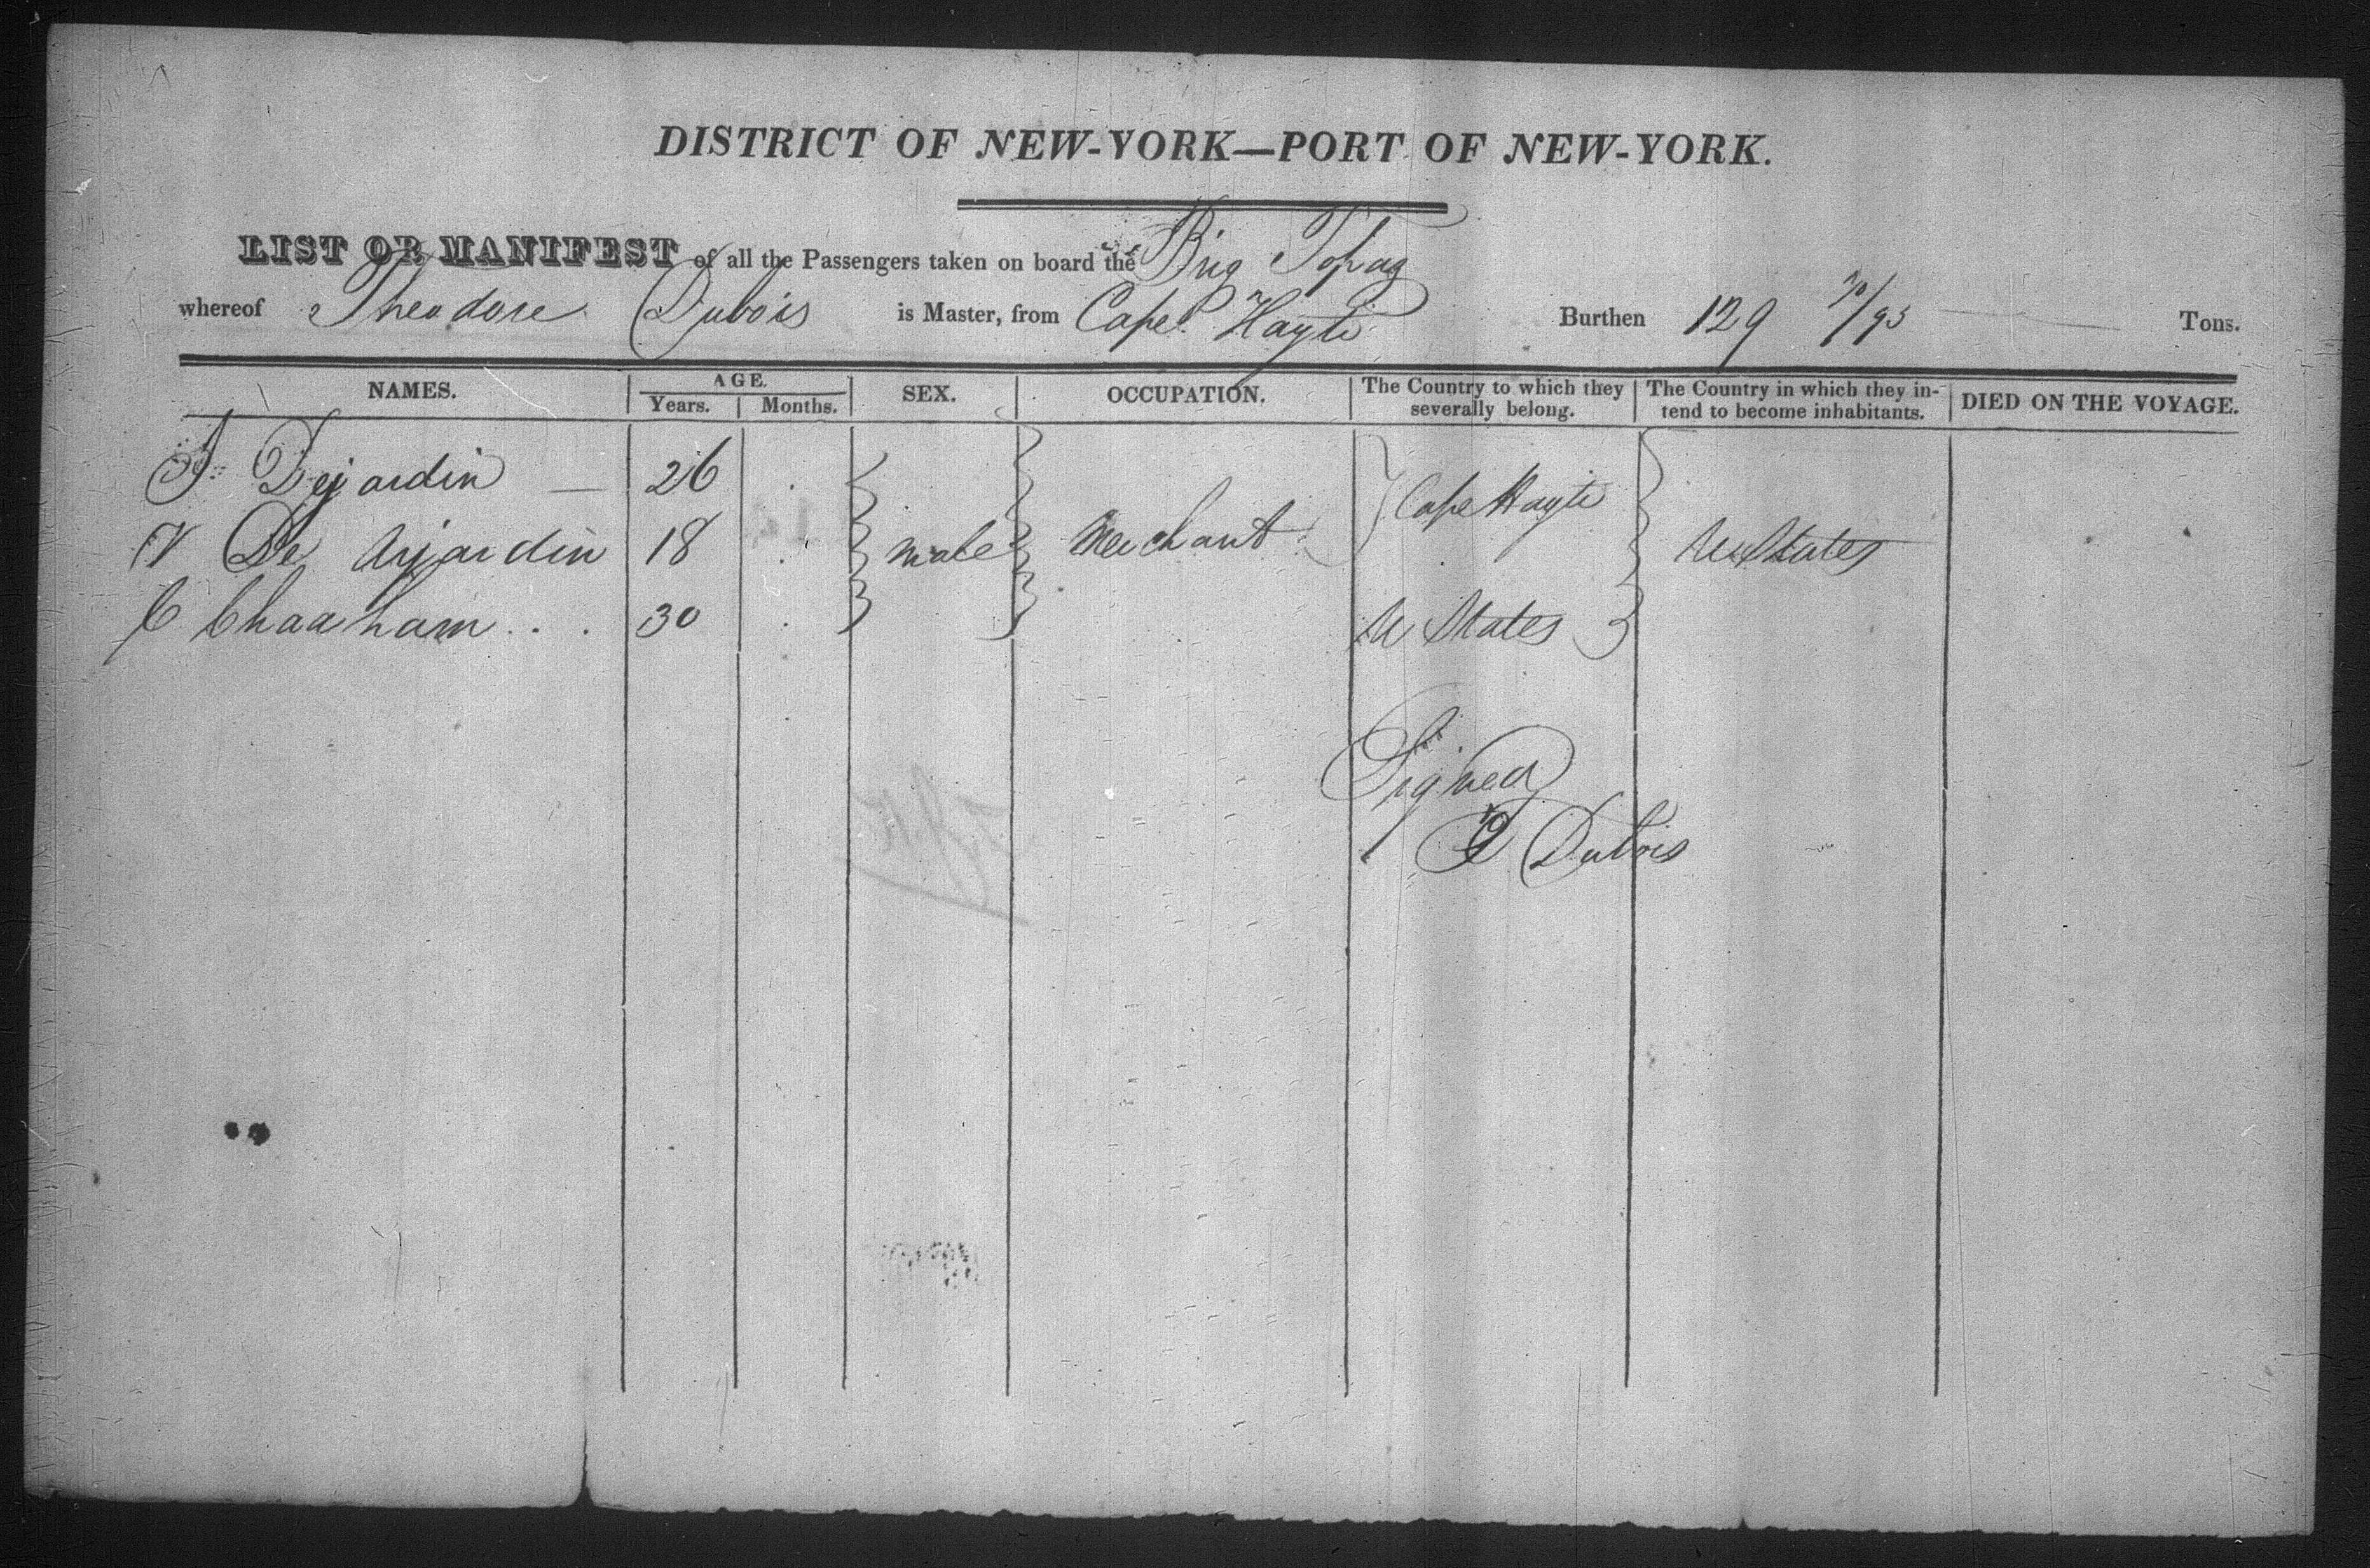 DISTRICT OF NEW-YORK—PORT OF NEW-YORK.
LIST OR MANIFEST of all the Passengers taken on board the Brig Topaz
whereof Theodore Dubois is Master, from Cape Hayti Burthen 129 /95 Tons.
NAMES. AGE. Years. Months. SEX. OCCUPATION. The Country to which they severally belong. The Country in which they intend to become inhabitants. DIED ON THE VOYAGE.
Dejardin — 26 Cape Hayti
De 18 male Merchant U States
C 30 U States
Signed
T Dubois